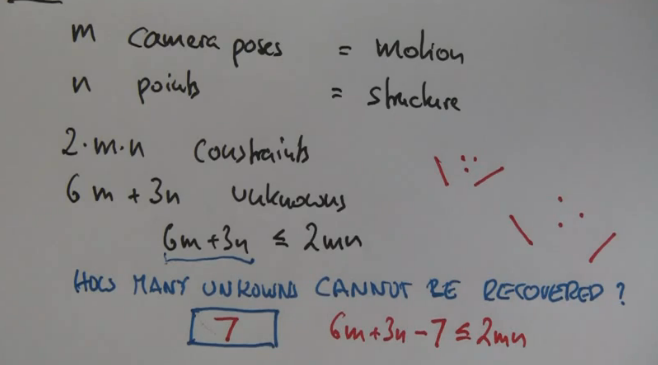 m camera poses = motion
n points = structure
2·m·n constraints
6m + 3n unknowns
6m+3n ≤ 2mn
HOW MANY UNKOWNS CANNOT BE RECOVERED?
7 6m+3n-7 ≤ 2mn